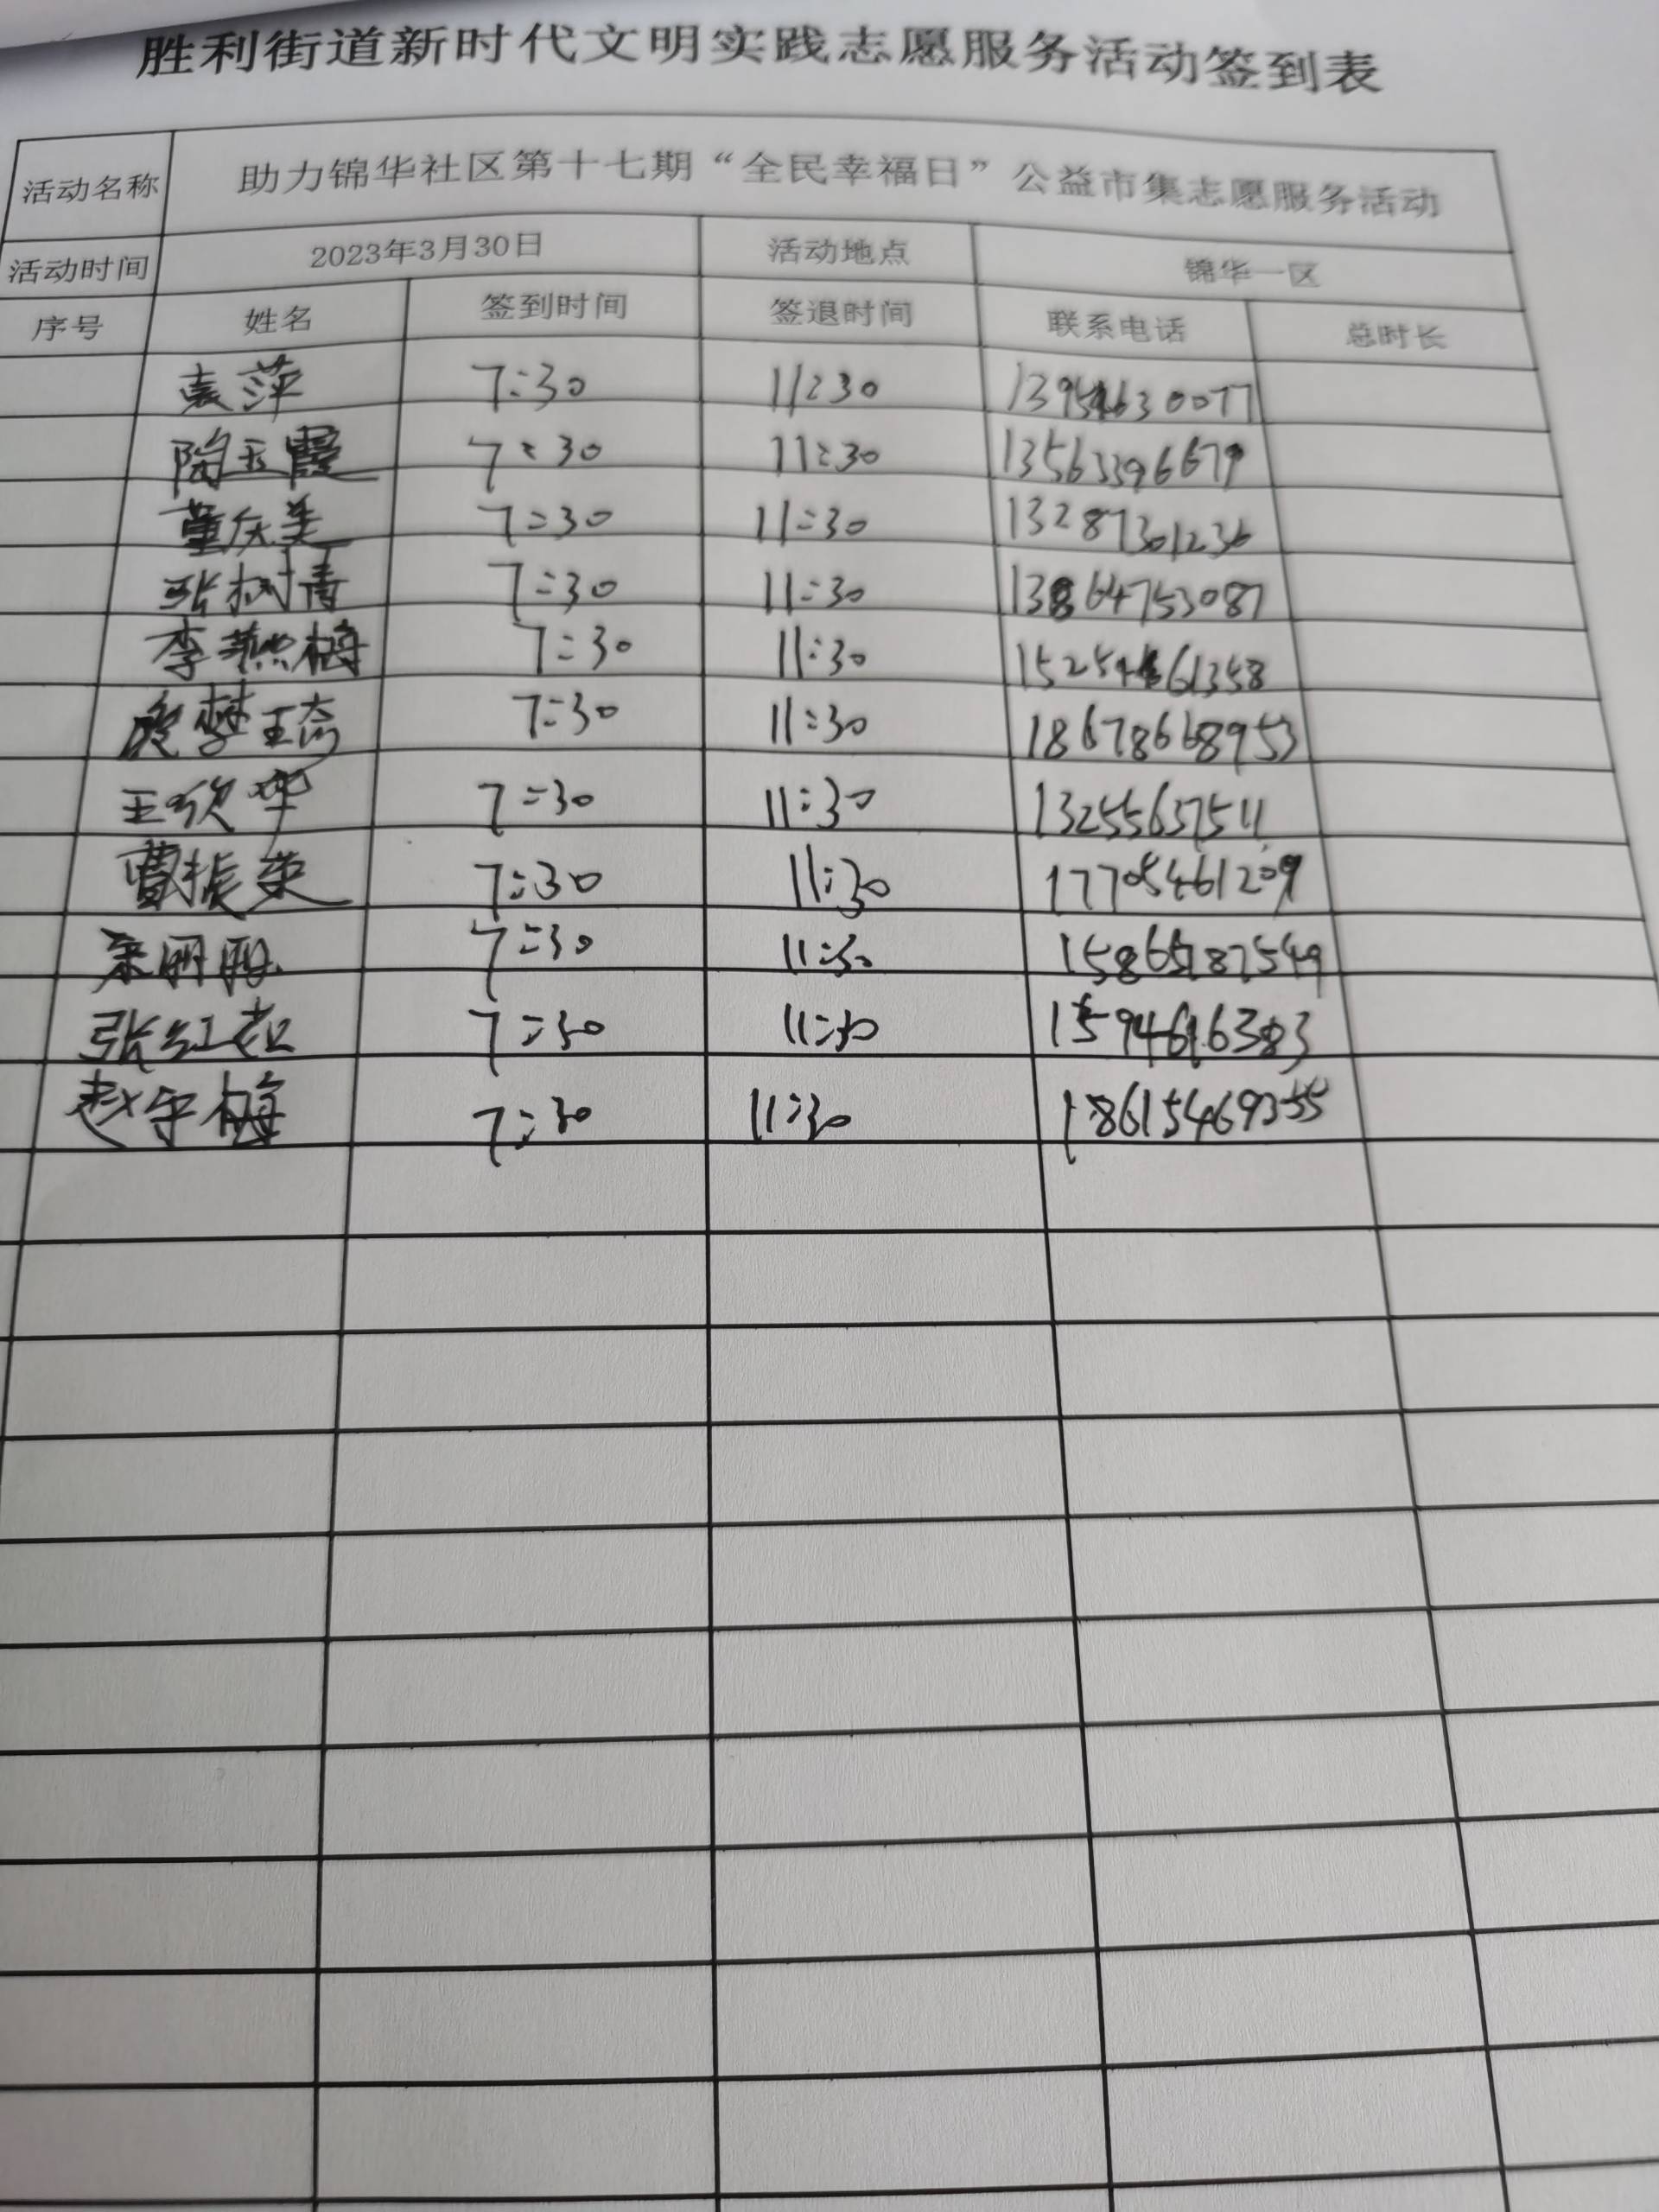 胜利街道新时代文明实践志愿服务活动签到表
活动名称 助力锦华社区第十七期“全民幸福日”公益市集志愿服务活动
活动时间 2023年3月30日 活动地点 锦华一区
序号 姓名 签到时间 签退时间 联系电话 总时长
袁萍 7:30 11:30 13954630077
陶玉霞 7:30 11:30
董庆美 7:30 11:30 13287301236
张树青 7:30 11:30 13864753087
李燕梅 7:30 11:30
梦琦 7:30 11:30 18678668953
王欣华 7:30 11:30 13255637511
曹振英 7:30 11:30 17705461209
7:30 11:30
张红 7:30 11:30
赵守梅 7:30 11:30 18615469355